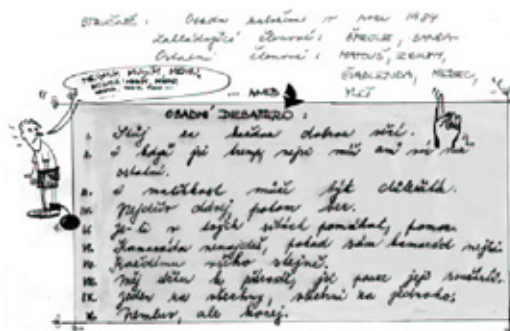 STRUČNĚ: Osada založena v roce 1984
Zakládající členové:
Ostatní členové: MATOUŠ,
MEDEC,
... ANEB
OSADNÍ DESATERO:
I. Stůj za každou dobrou věcí.
II. I když jsi tremp, nejsi míň ani víc než
ostatní.
III. I maličkost může být důležitá.
IV. Nejdřív dávej, potom ber.
V. Je-li v tvých silách pomáhat, pomoz.
VI. Kamaráda nenajdeš, pokud sám kamarád nejsi.
VII. Každému všeho stejně.
VIII. Měj úctu k přírodě, jsi pouze její součástí.
IX. Jeden za všechny, všichni za jednoho.
X. Nemluv, ale konej.